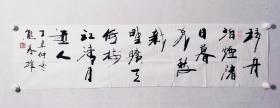 移舟
泊煙渚
日暮
客愁
新
野曠天
低樹
江清月
近人